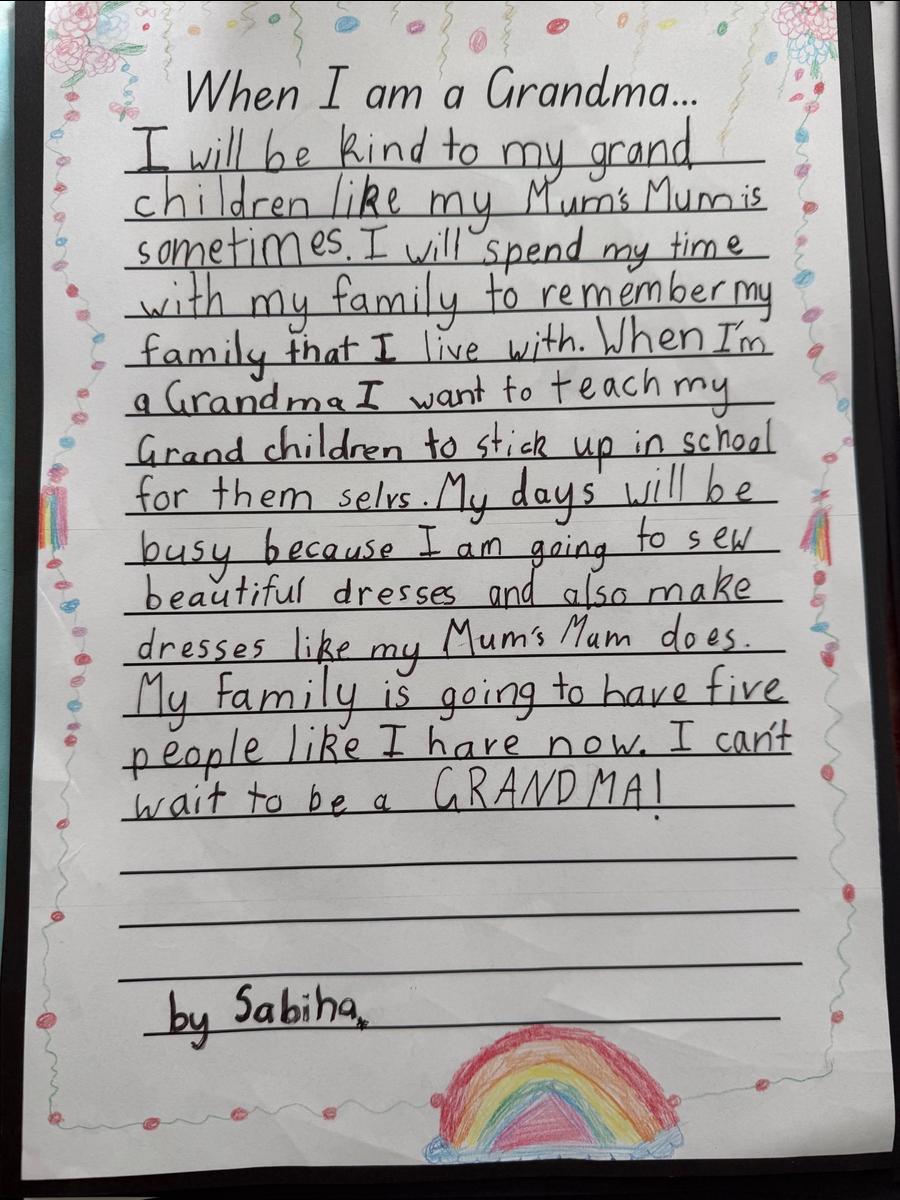 When I am a Grandma...
I will be kind to my grand
children like my Mum's Mum is
sometimes. I will spend my time
with my family to remember my
family that I live with. When I'm
a Grandma I want to teach my
Grand children to stick up in school
for them selvs. My days will be
busy because I am going to sew
beautiful dresses and also make
dresses like my Mum's Mum does.
My family is going to have five
people like I have now. I can't
wait to be a GRANDMA!
by Sabiha.